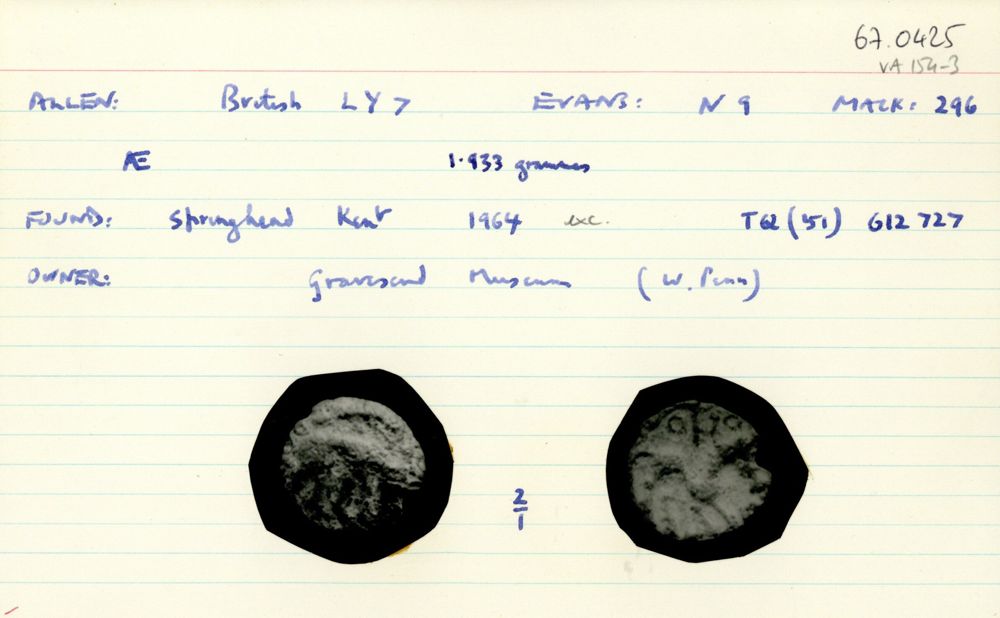 67.0425
VA 154-3
ALLEN: British LY7 EVANS: N 9 MACK: 296
Æ 1.933 grammes
FOUND: Springhead Kent 1964 exc. TQ (51) 612 727
OWNER: Gravesend Museum (W. Penn)
2
1